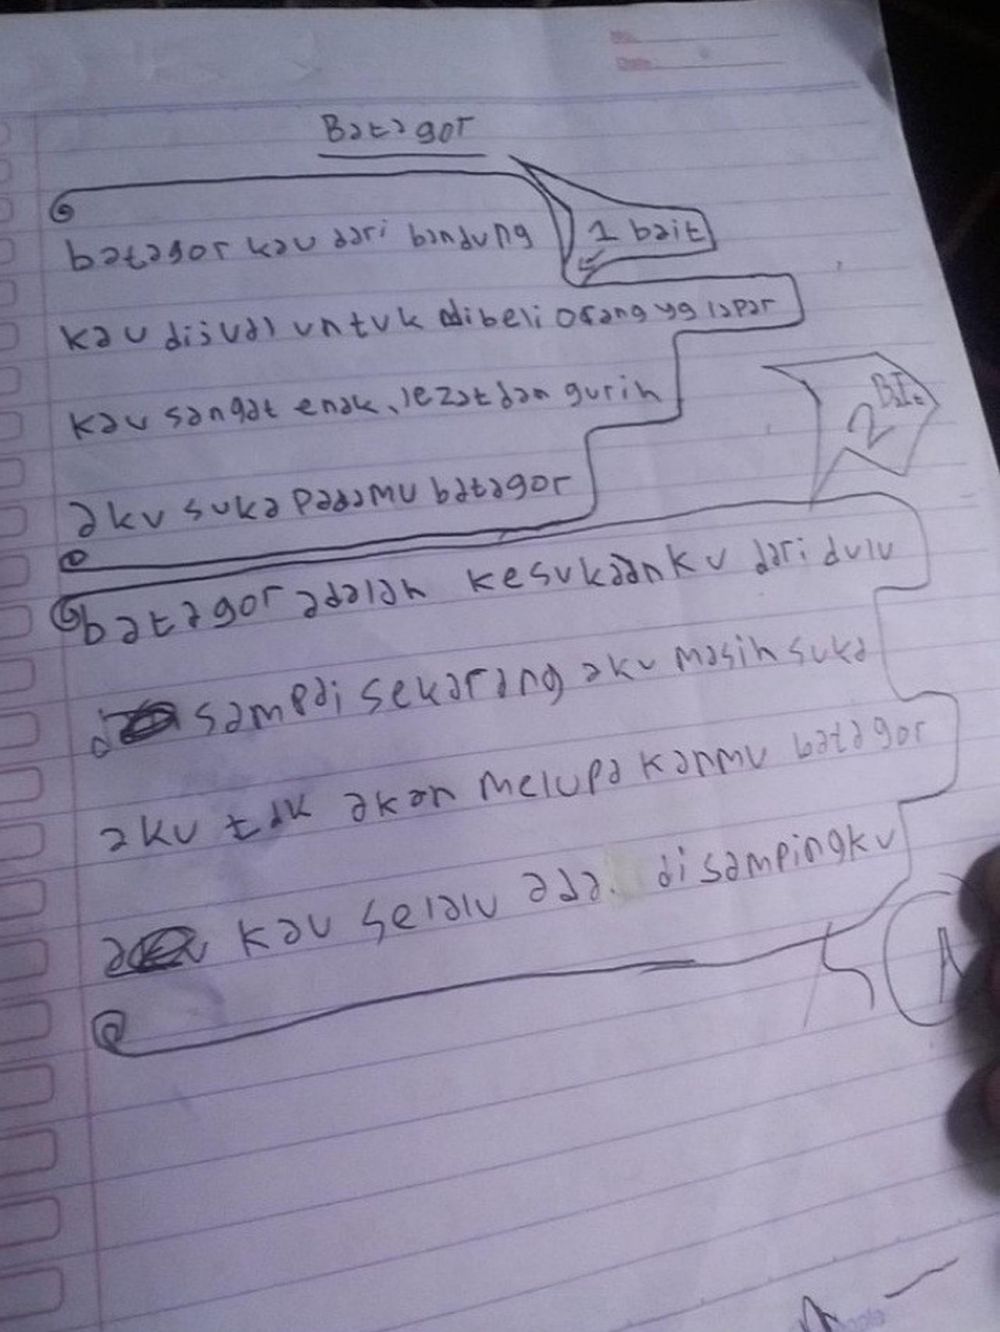 No.
Date
Batagor
batagor kau dari bandung
1 bait
kau dijual untuk dibeli orang yg lapar
kau sangat enak, lezat dan gurih
2 BI.
aku suka padamu batagor
batagor adalah kesukaanku dari dulu
sampai sekarang aku masih suka
aku tak akan melupakanmu batagor
kau selalu ada. disampingku
A